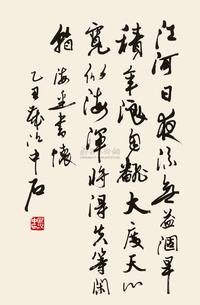 江河日夜流無益涸旱
積年混自翻大度天心
寬似海渾將得失等閑
看
海邊書懷
乙丑
中石